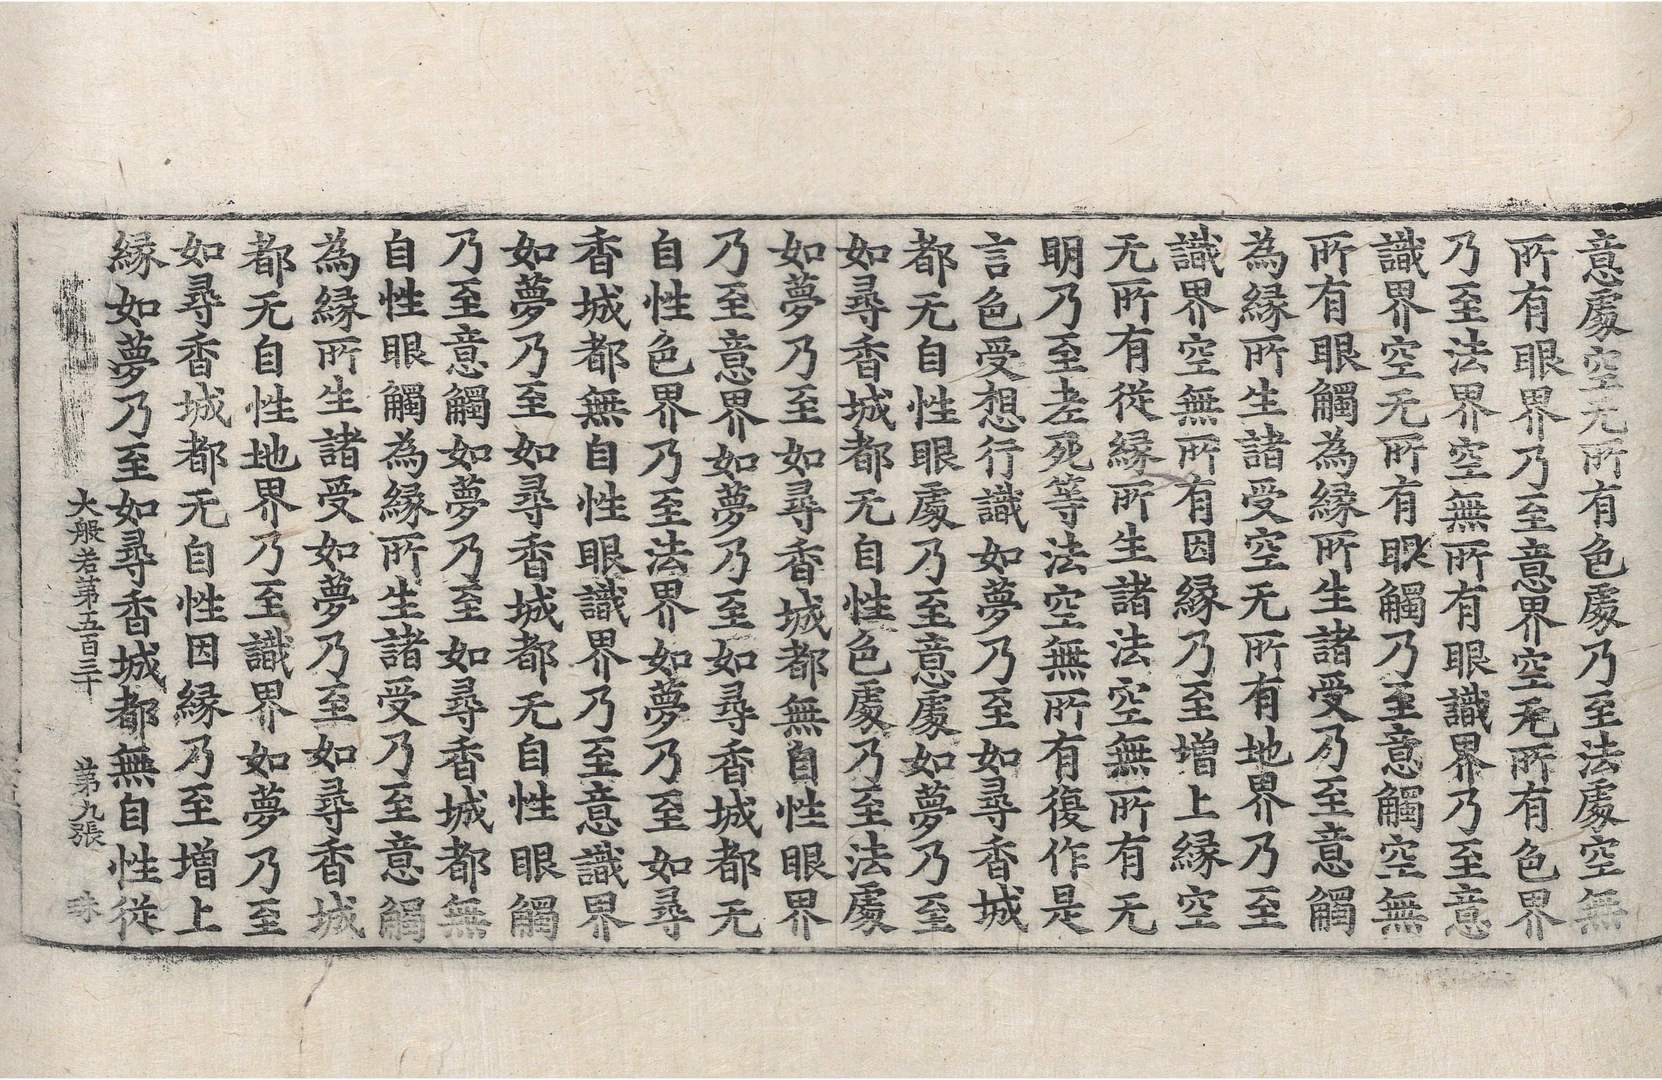 意處空无所有色處乃至法處空無
所有眼界乃至意界空无所有色界
乃至法界空無所有眼識界乃至意
識界空无所有眼觸乃至意觸空無
所有眼觸為緣所生諸受乃至意觸
為緣所生諸受空无所有地界乃至
識界空無所有因緣乃至增上緣空
无所有從緣所生諸法空無所有无
明乃至老死等法空無所有復作是
言色受想行識如夢乃至如尋香城
都无自性眼處乃至意處如夢乃至
如尋香城都无自性色處乃至法處
如夢乃至如尋香城都無自性眼界
乃至意界如夢乃至如尋香城都无
自性色界乃至法界如夢乃至如尋
香城都無自性眼識界乃至意識界
如夢乃至如尋香城都无自性眼觸
乃至意觸如夢乃至如尋香城都無
自性眼觸為緣所生諸受乃至意觸
為緣所生諸受如夢乃至如尋香城
都无自性地界乃至識界如夢乃至
如尋香城都无自性因緣乃至增上
緣如夢乃至如尋香城都無自性從
大般若第五百三十 第九張